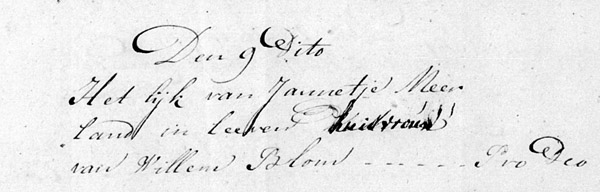 Den 9 Dito
Het lijk van Jannetje Meer
land in leeven huisvrouw
van Willem Blom - - - - - - Pro Deo